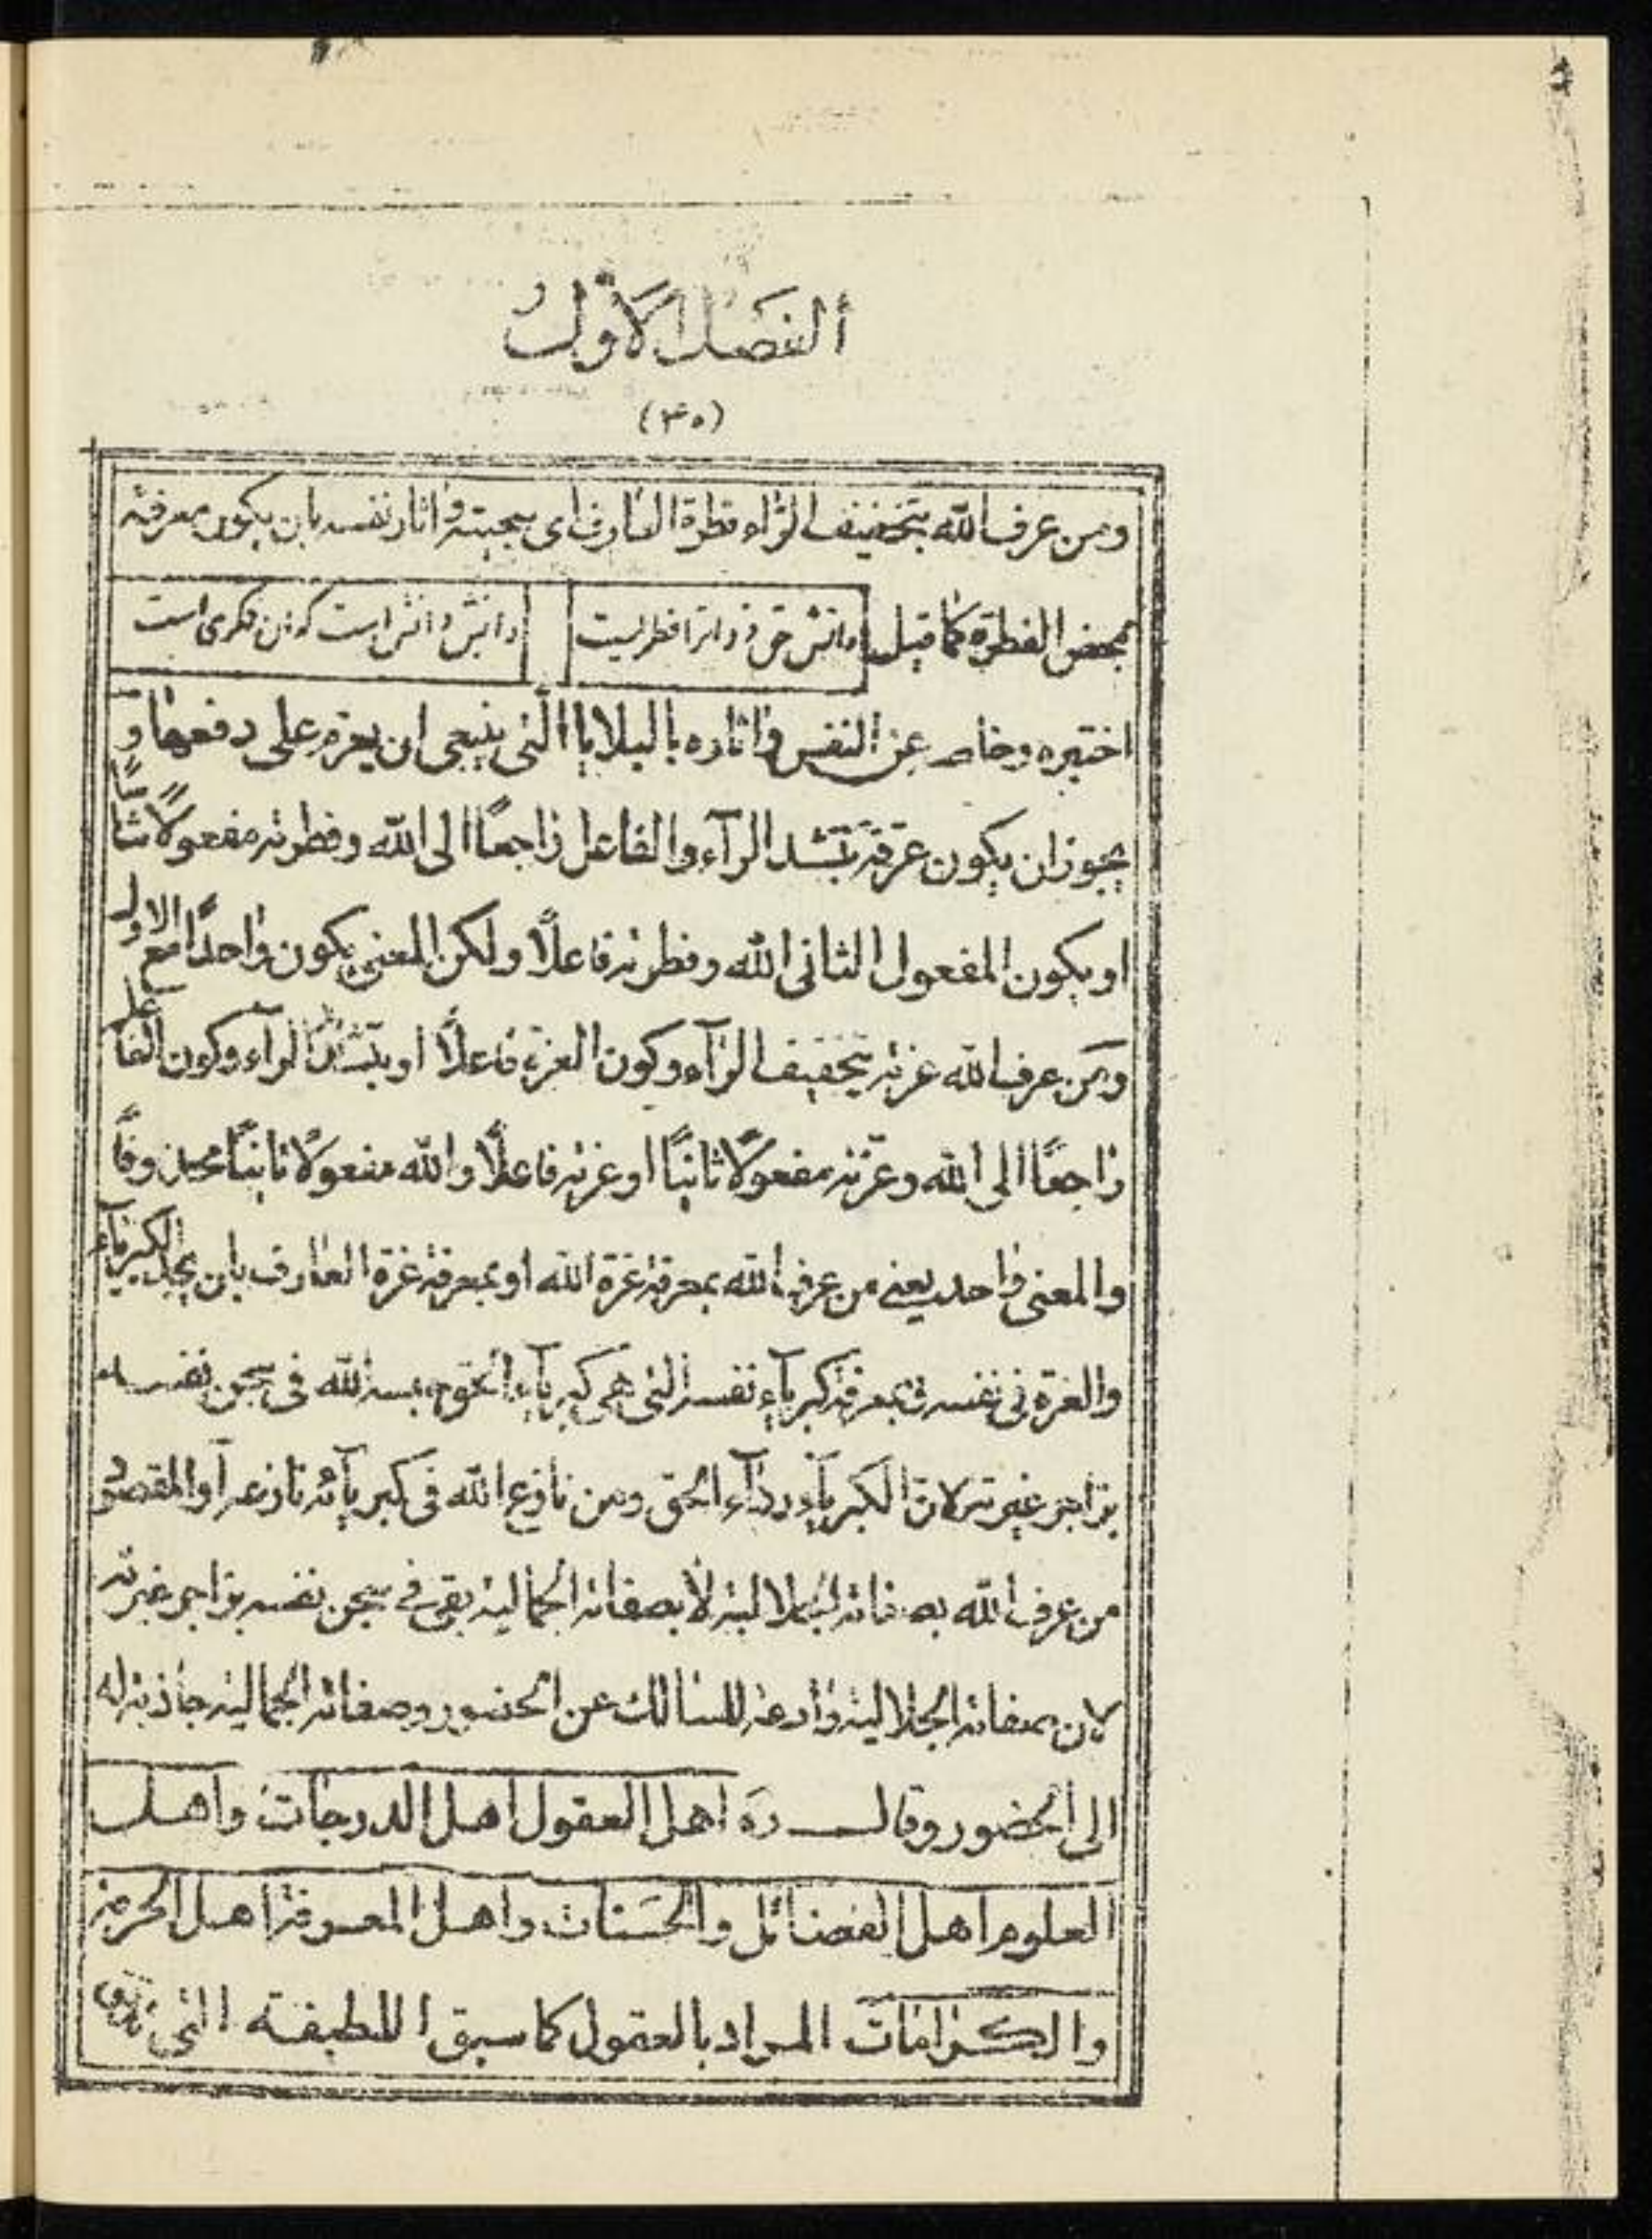 ألفصل الأول
(۳۵)
ومن عرف الله بتخفيف الراء فطرة العارف اى سجيته واثار نفسه بان يكون معرفته
بمحض الفطرة كما قيل دانش حق ذراترا فطريست دانش دانش است كه ان فكرى است
اختبره وخلص عن النفس واثاره بالبلايا التى ينبغى ان يعزم على دفعها و
يجوز ان يكون عرفه بتشد الرآء والفاعل راجعًا الى الله وفطرته مفعولًا ثانيًا
او يكون المفعول الثانى الله وفطرته فاعلًا ولكن المعنى يكون واحدًا مع الاول
ومن عرف الله عزته بتخفيف الرآء وكون العزة فاعلًا او بتشد الرآء وكون الفاعل
راجعًا الى الله وعزته مفعولًا ثانيًا او عزته فاعلًا والله مفعولًا ثانيًا محذوفًا
والمعنى واحد يعنى من عرف الله بمعرفة عزة الله او بمعرفة عزة العارف بان يجد الكبرياء
والعزة فى نفسه فبمعرفة كبرياء نفسه التى هى كبرياء الحق الله فى سجن نفسه
بزاجر غيرته لان الكبرياء رداء الحق ومن نازع الله فى كبريآئه نازعه او المقصود
من عرف الله بصفاته الجلالية لا بصفاته الجمالية بقى فى سجن نفسه بزاجر غيرته
لان صفاته الجلالية رادعة للسالك عن الحضور وصفاته الجمالية جاذبة له
الى الحضور وقال ره اهل العقول اهل الدرجات واهل
العلوم اهل الفضائل والحسنات واهل المعرفة اهل الحرمة
والكرامات المراد بالعقول كما سبق اللطيفة التى